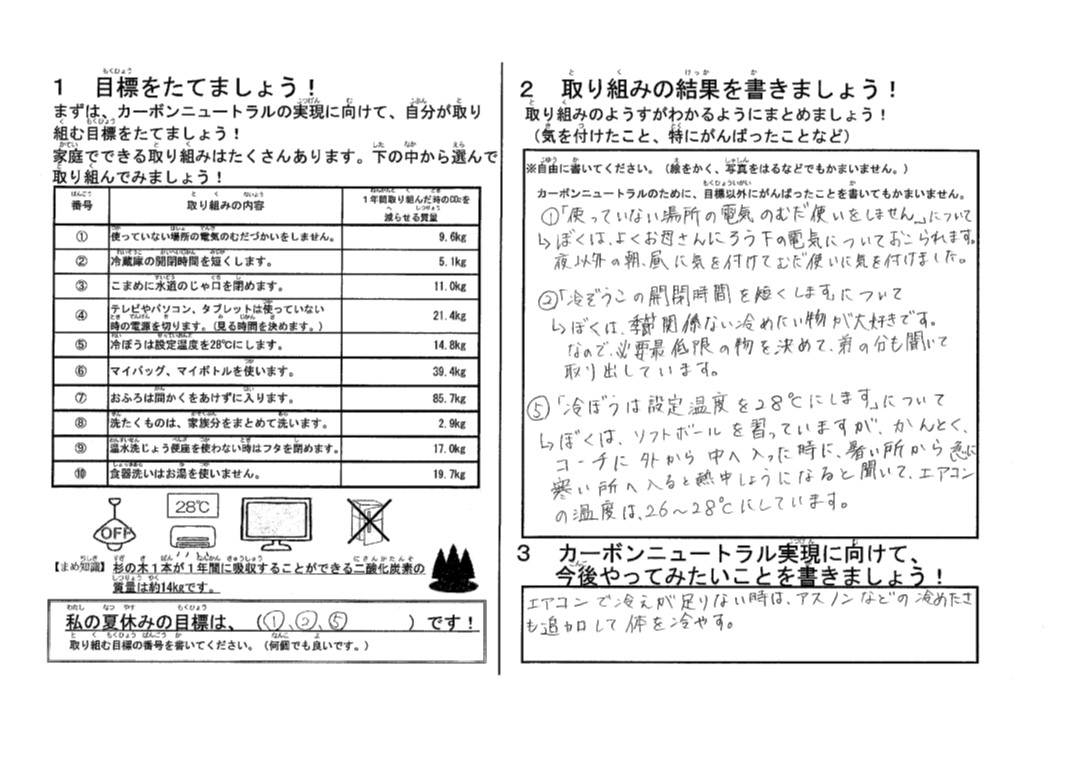 1 目標をたてましょう！
まずは、カーボンニュートラルの実現に向けて、自分が取り
組む目標をたてましょう！
家庭でできる取り組みはたくさんあります。下の中から選んで
取り組んでみましょう！
番号 取り組みの内容 1年間取り組んだ時のCO₂を減らせる質量
① 使っていない場所の電気のむだづかいをしません。 9.6kg
② 冷蔵庫の開閉時間を短くします。 5.1kg
③ こまめに水道のじゃ口を閉めます。 11.0kg
④ テレビやパソコン、タブレットは使っていない
時の電源を切ります。（見る時間を決めます。） 21.4kg
⑤ 冷ぼうは設定温度を28℃にします。 14.8kg
⑥ マイバッグ、マイボトルを使います。 39.4kg
⑦ おふろは間かくをあけずに入ります。 85.7kg
⑧ 洗たくものは、家族分をまとめて洗います。 2.9kg
⑨ 温水洗じょう便座を使わない時はフタを閉めます。 17.0kg
⑩ 食器洗いはお湯を使いません。 19.7kg
OFF
28℃
【まめ知識】杉の木1本が1年間に吸収することができる二酸化炭素の
質量は約14kgです。
私の夏休みの目標は、（①、②、⑤）です！
取り組む目標の番号を書いてください。（何個でも良いです。）
2 取り組みの結果を書きましょう！
取り組みのようすがわかるようにまとめましょう！
（気を付けたこと、特にがんばったことなど）
※自由に書いてください。（絵をかく、写真をはるなどでもかまいません。）
カーボンニュートラルのために、目標以外にがんばったことを書いてもかまいません。
①「使っていない場所の電気のむだ使いをしません。」について
↳ぼくは、よくお母さんにろう下の電気についておこられます。
夜以外の朝、昼に気を付けてむだ使いに気を付けました。
②「冷ぞうこの開閉時間を短くします」について
↳ぼくは、季節関係ない冷めたい物が大好きです。
なので、必要最低限の物を決めて、弟の分も聞いて
取り出しています。
⑤「冷ぼうは設定温度を28℃にします」について
↳ぼくは、ソフトボールを習っていますが、かんとく、
コーチに外から中へ入った時に、暑い所から急に
寒い所へ入ると熱中しょうになると聞いて、エアコン
の温度は、26～28℃にしています。
3 カーボンニュートラル実現に向けて、
今後やってみたいことを書きましょう！
エアコンで冷えが足りない時は、アスノンなどの冷めたさ
も追加して体を冷やす。